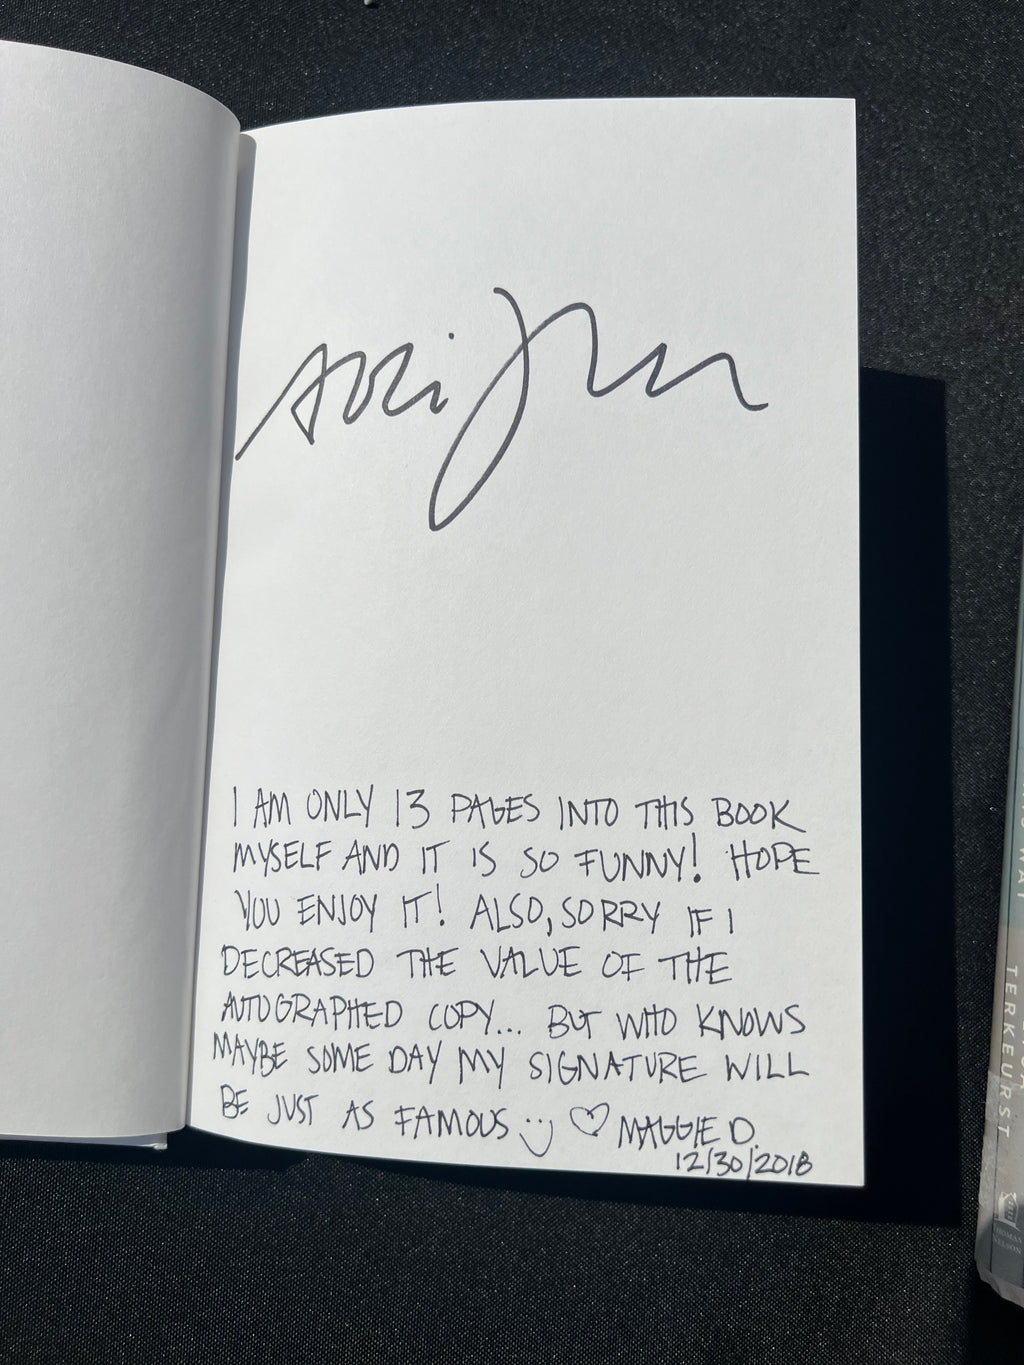 I AM ONLY 13 PAGES INTO THIS BOOK
MYSELF AND IT IS SO FUNNY! HOPE
YOU ENJOY IT! ALSO, SORRY IF I
DECREASED THE VALUE OF THE
AUTOGRAPHED COPY... BUT WHO KNOWS
MAYBE SOME DAY MY SIGNATURE WILL
BE JUST AS FAMOUS :) ♡ MAGGIE D.
12/30/2018
TERKEURST
THOMAS
NELSON